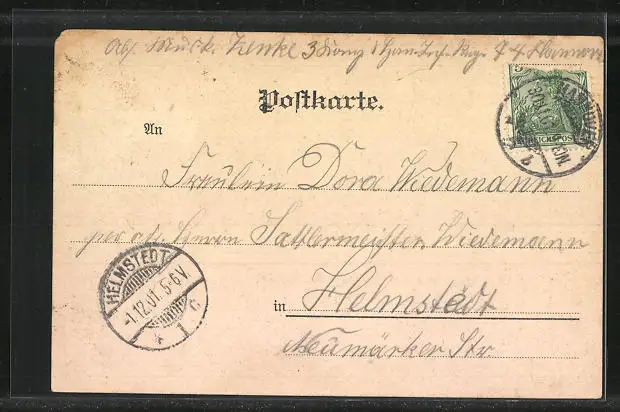 Abs. Musk. Zenke 3 Komp. 1 Han. Inf. Reg. 74 Hannover
Postkarte.
An
HANNOVER
REICHSPOST
Fräulein Dora Wiedemann
per ad. Herrn Sattlermeister Wiedemann
HELMSTEDT
-1.12.01. 5-6V.
* 1 c
in Helmstedt
Neumärker Str.